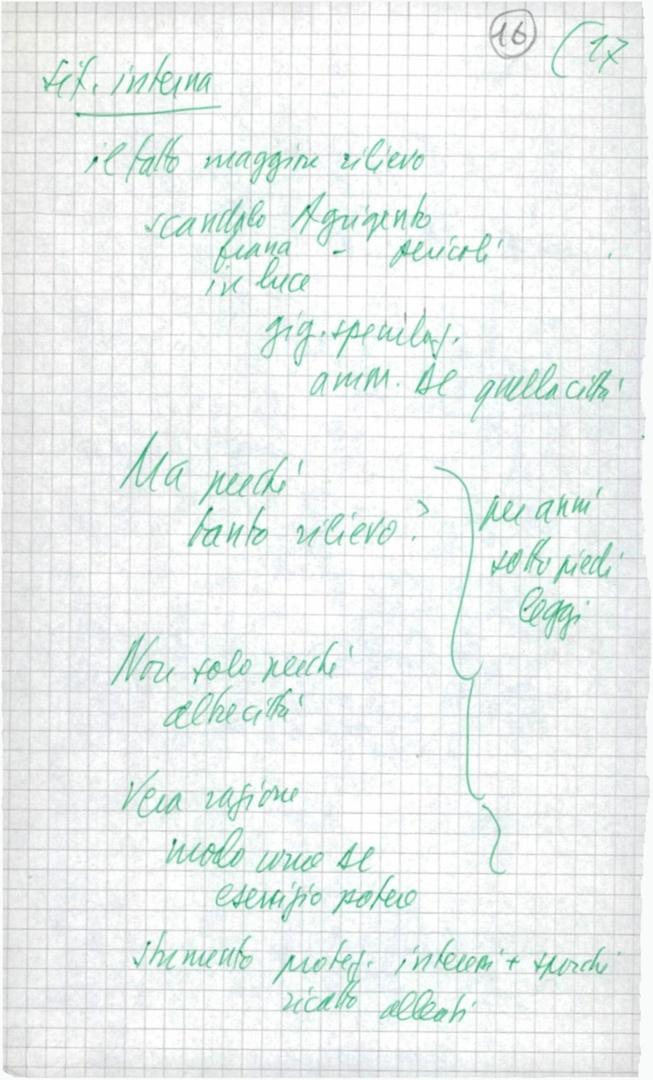 16 (17
sit. interna
il fatto maggiore rilievo
scandalo Agrigento
frana - pericoli
in luce
gig. speculaz.
amm. DC quella città
Ma perché
tanto rilievo?
per anni
sotto piedi
leggi
Non solo perché
altre città
Vera ragione
modo come DC
esercizio potere
strumento proteg. interessi + sporchi
ricatto alleati